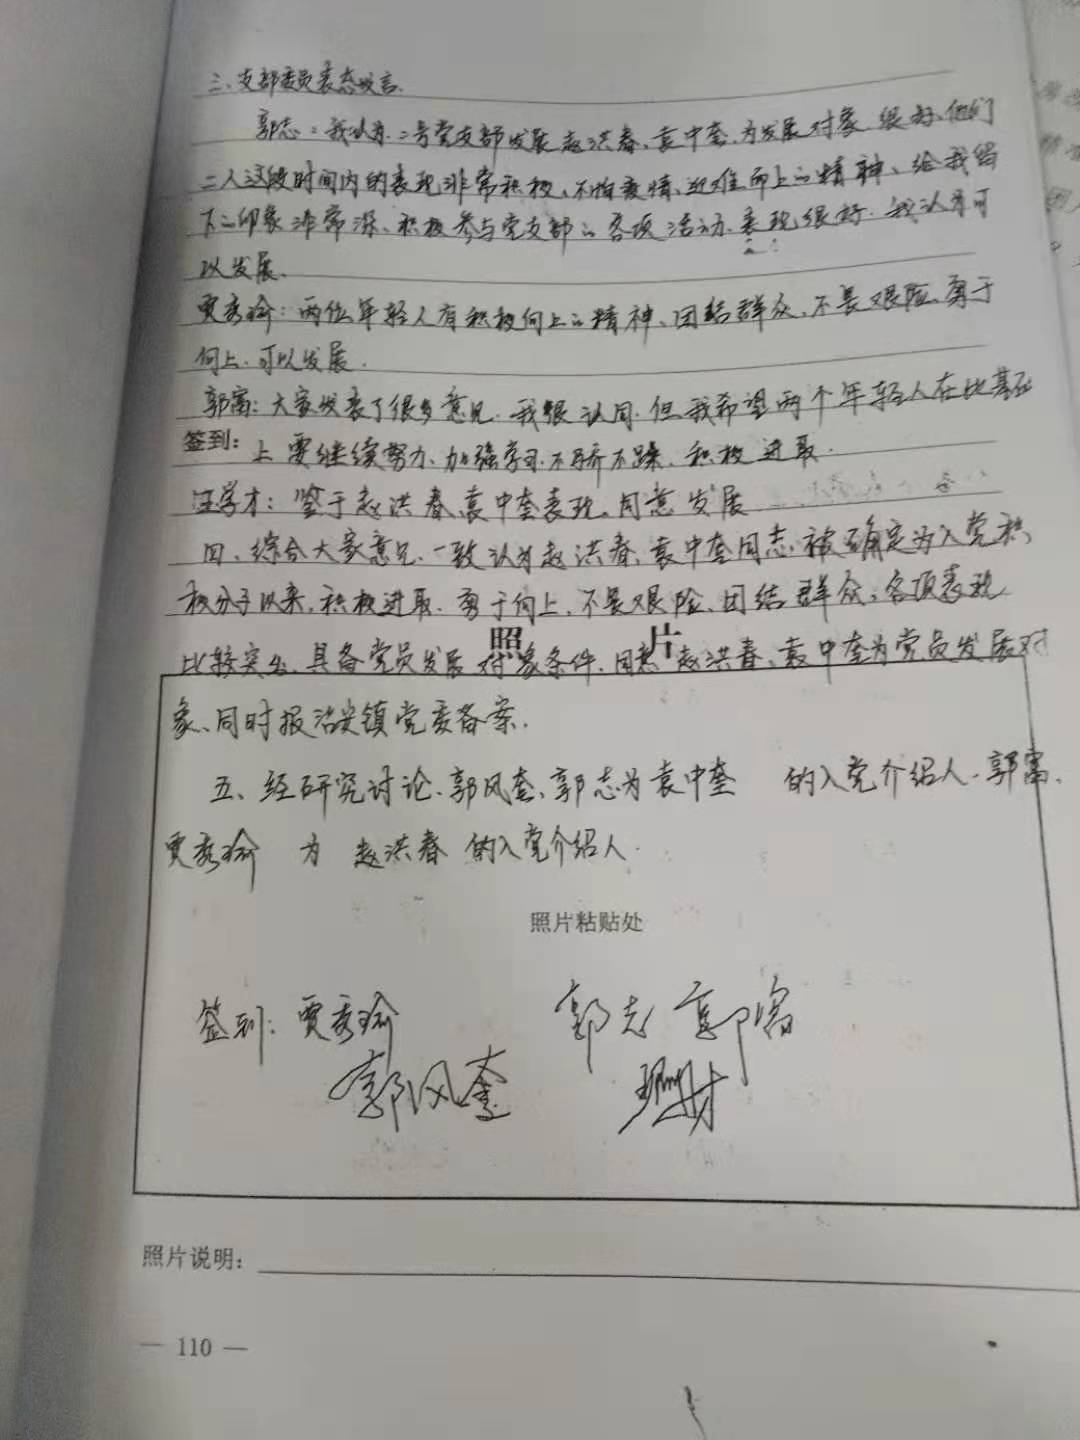 三、支部委员表态发言.
郭志：我认为.二号党支部发展赵洪春、袁中奎.为发展对象 很好.他们
二人这段时间内的表现非常积极、不怕疫情、迎难而上的精神、给我留
下的印象非常深、积极参与党支部的各项活动.表现很好.我认为可
以发展.
贾秀瑜：两位年轻人有积极向上的精神、团结群众、不畏艰险、勇于
向上.可以发展.
郭富：大家发表了很多意见.我很认同.但我希望两个年轻人在此基础
签到：
上要继续努力、加强学习.不骄不躁、积极进取.
汪学才：鉴于赵洪春、袁中奎表现、同意发展
四、综合大家意见.一致认为赵洪春、袁中奎同志.被确定为入党积
极分子以来.积极进取.勇于向上、不畏艰险、团结群众、各项表现
照 片
比较突出、具备党员发展对象条件.同意赵洪春、袁中奎为党员发展对
象、同时报治安镇党委备案.
五、经研究讨论.郭风奎、郭志为袁中奎 的入党介绍人.郭富、
贾秀瑜 为 赵洪春 的入党介绍人.
照片粘贴处
签到：贾秀瑜 郭志 郭富
郭风奎
照片说明：
— 110 —